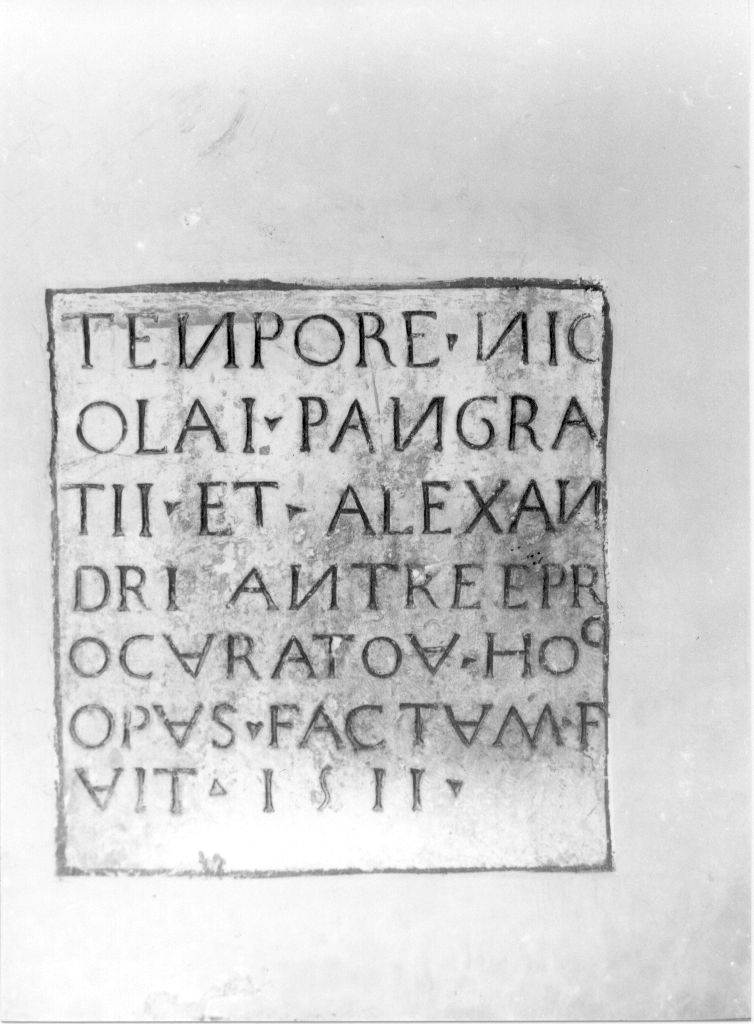 TENPORE · NIC
OLAI · PANGRA
TII · ET · ALEXAN
DRI ANTREE PR
OCVRATOV · HOC
OPVS · FACTVM · F
VIT · 1511 ·